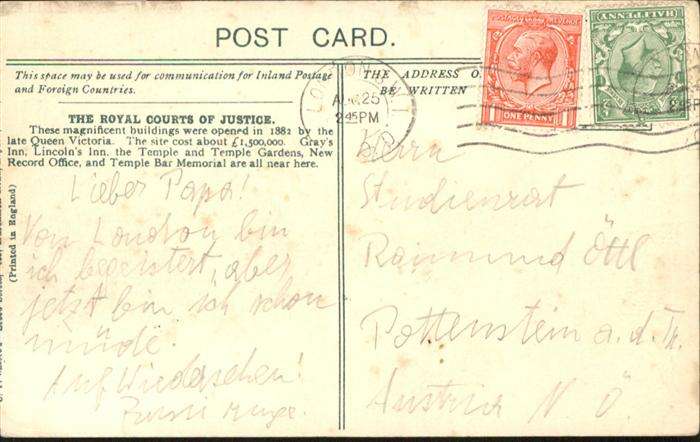 POST CARD.
This space may be used for communication for Inland Postage
and Foreign Countries.
THE ADDRESS O
BE WRITTEN
THE ROYAL COURTS OF JUSTICE.
These magnificent buildings were opened in 1882 by the
late Queen Victoria. The site cost about £1,500,000. Gray's
Inn, Lincoln's Inn, the Temple and Temple Gardens, New
Record Office, and Temple Bar Memorial are all near here.
(Printed in England)
Lieber Papa!
Von London bin
ich begeistert, aber
jetzt bin ich schon
müde.
Auf Wiedersehen!
LONDON
25
2.45PM
POSTAGE REVENUE
ONE PENNY
HALFPENNY
Herrn
Studienrat
Raimund Öttl
Pottenstein a. d. Tr.
Austria N Ö